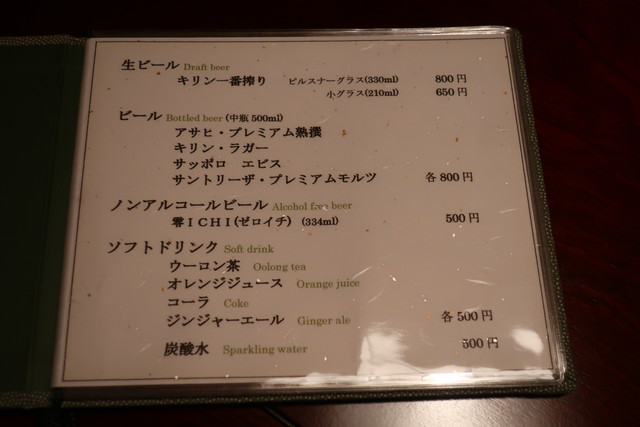 生ビール Draft beer
キリン一番搾り ピルスナーグラス(330ml) 800円
小グラス(210ml) 650円
ビール Bottled beer (中瓶 500ml)
アサヒ・プレミアム熟撰
キリン・ラガー
サッポロ エビス
サントリーザ・プレミアムモルツ 各800円
ノンアルコールビール Alcohol free beer
零ICHI(ゼロイチ) (334ml) 500円
ソフトドリンク Soft drink
ウーロン茶 Oolong tea
オレンジジュース Orange juice
コーラ Coke
ジンジャーエール Ginger ale 各500円
炭酸水 Sparkling water 500円